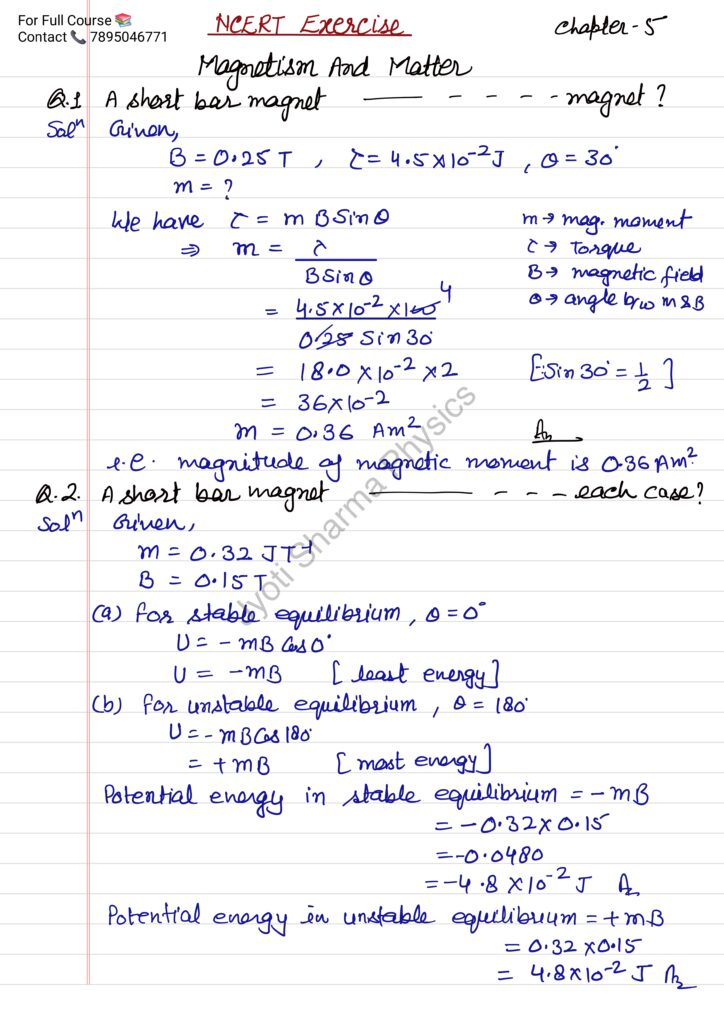 For Full Course 📚
Contact 📞 7895046771
NCERT Exercise
Chapter-5
Magnetism And Matter
Q.1 A short bar magnet —— - - - - - magnet ?
Solⁿ Given,
B = 0.25 T , τ = 4.5×10⁻² J , θ = 30°
m = ?
We have τ = m B Sin θ
m → mag. moment
⇒ m = τ / B Sin θ
τ → Torque
B → magnetic field
θ → angle b/w m & B
= 4.5×10⁻² ×100 4 / 0.25 Sin 30°
= 18.0 ×10⁻² ×2 [∵ Sin 30° = 1/2 ]
= 36×10⁻²
m = 0.36 Am² Ans
i.e. magnitude of magnetic moment is 0.36 Am².
Q.2. A short bar magnet ——— - - - each case?
Solⁿ Given,
m = 0.32 JT⁻¹
B = 0.15 T
(a) for stable equilibrium, θ = 0°
U = - mB Cos 0°
U = - mB [ least energy]
(b) for unstable equilibrium , θ = 180°
U = - mB Cos 180°
= + mB [ most energy]
Potential energy in stable equilibrium = - mB
= - 0.32 × 0.15
= -0.0480
= -4.8 ×10⁻² J Ans
Potential energy in unstable equilibrium = + mB
= 0.32 ×0.15
= 4.8×10⁻² J Ans
Jyoti Sharma Physics